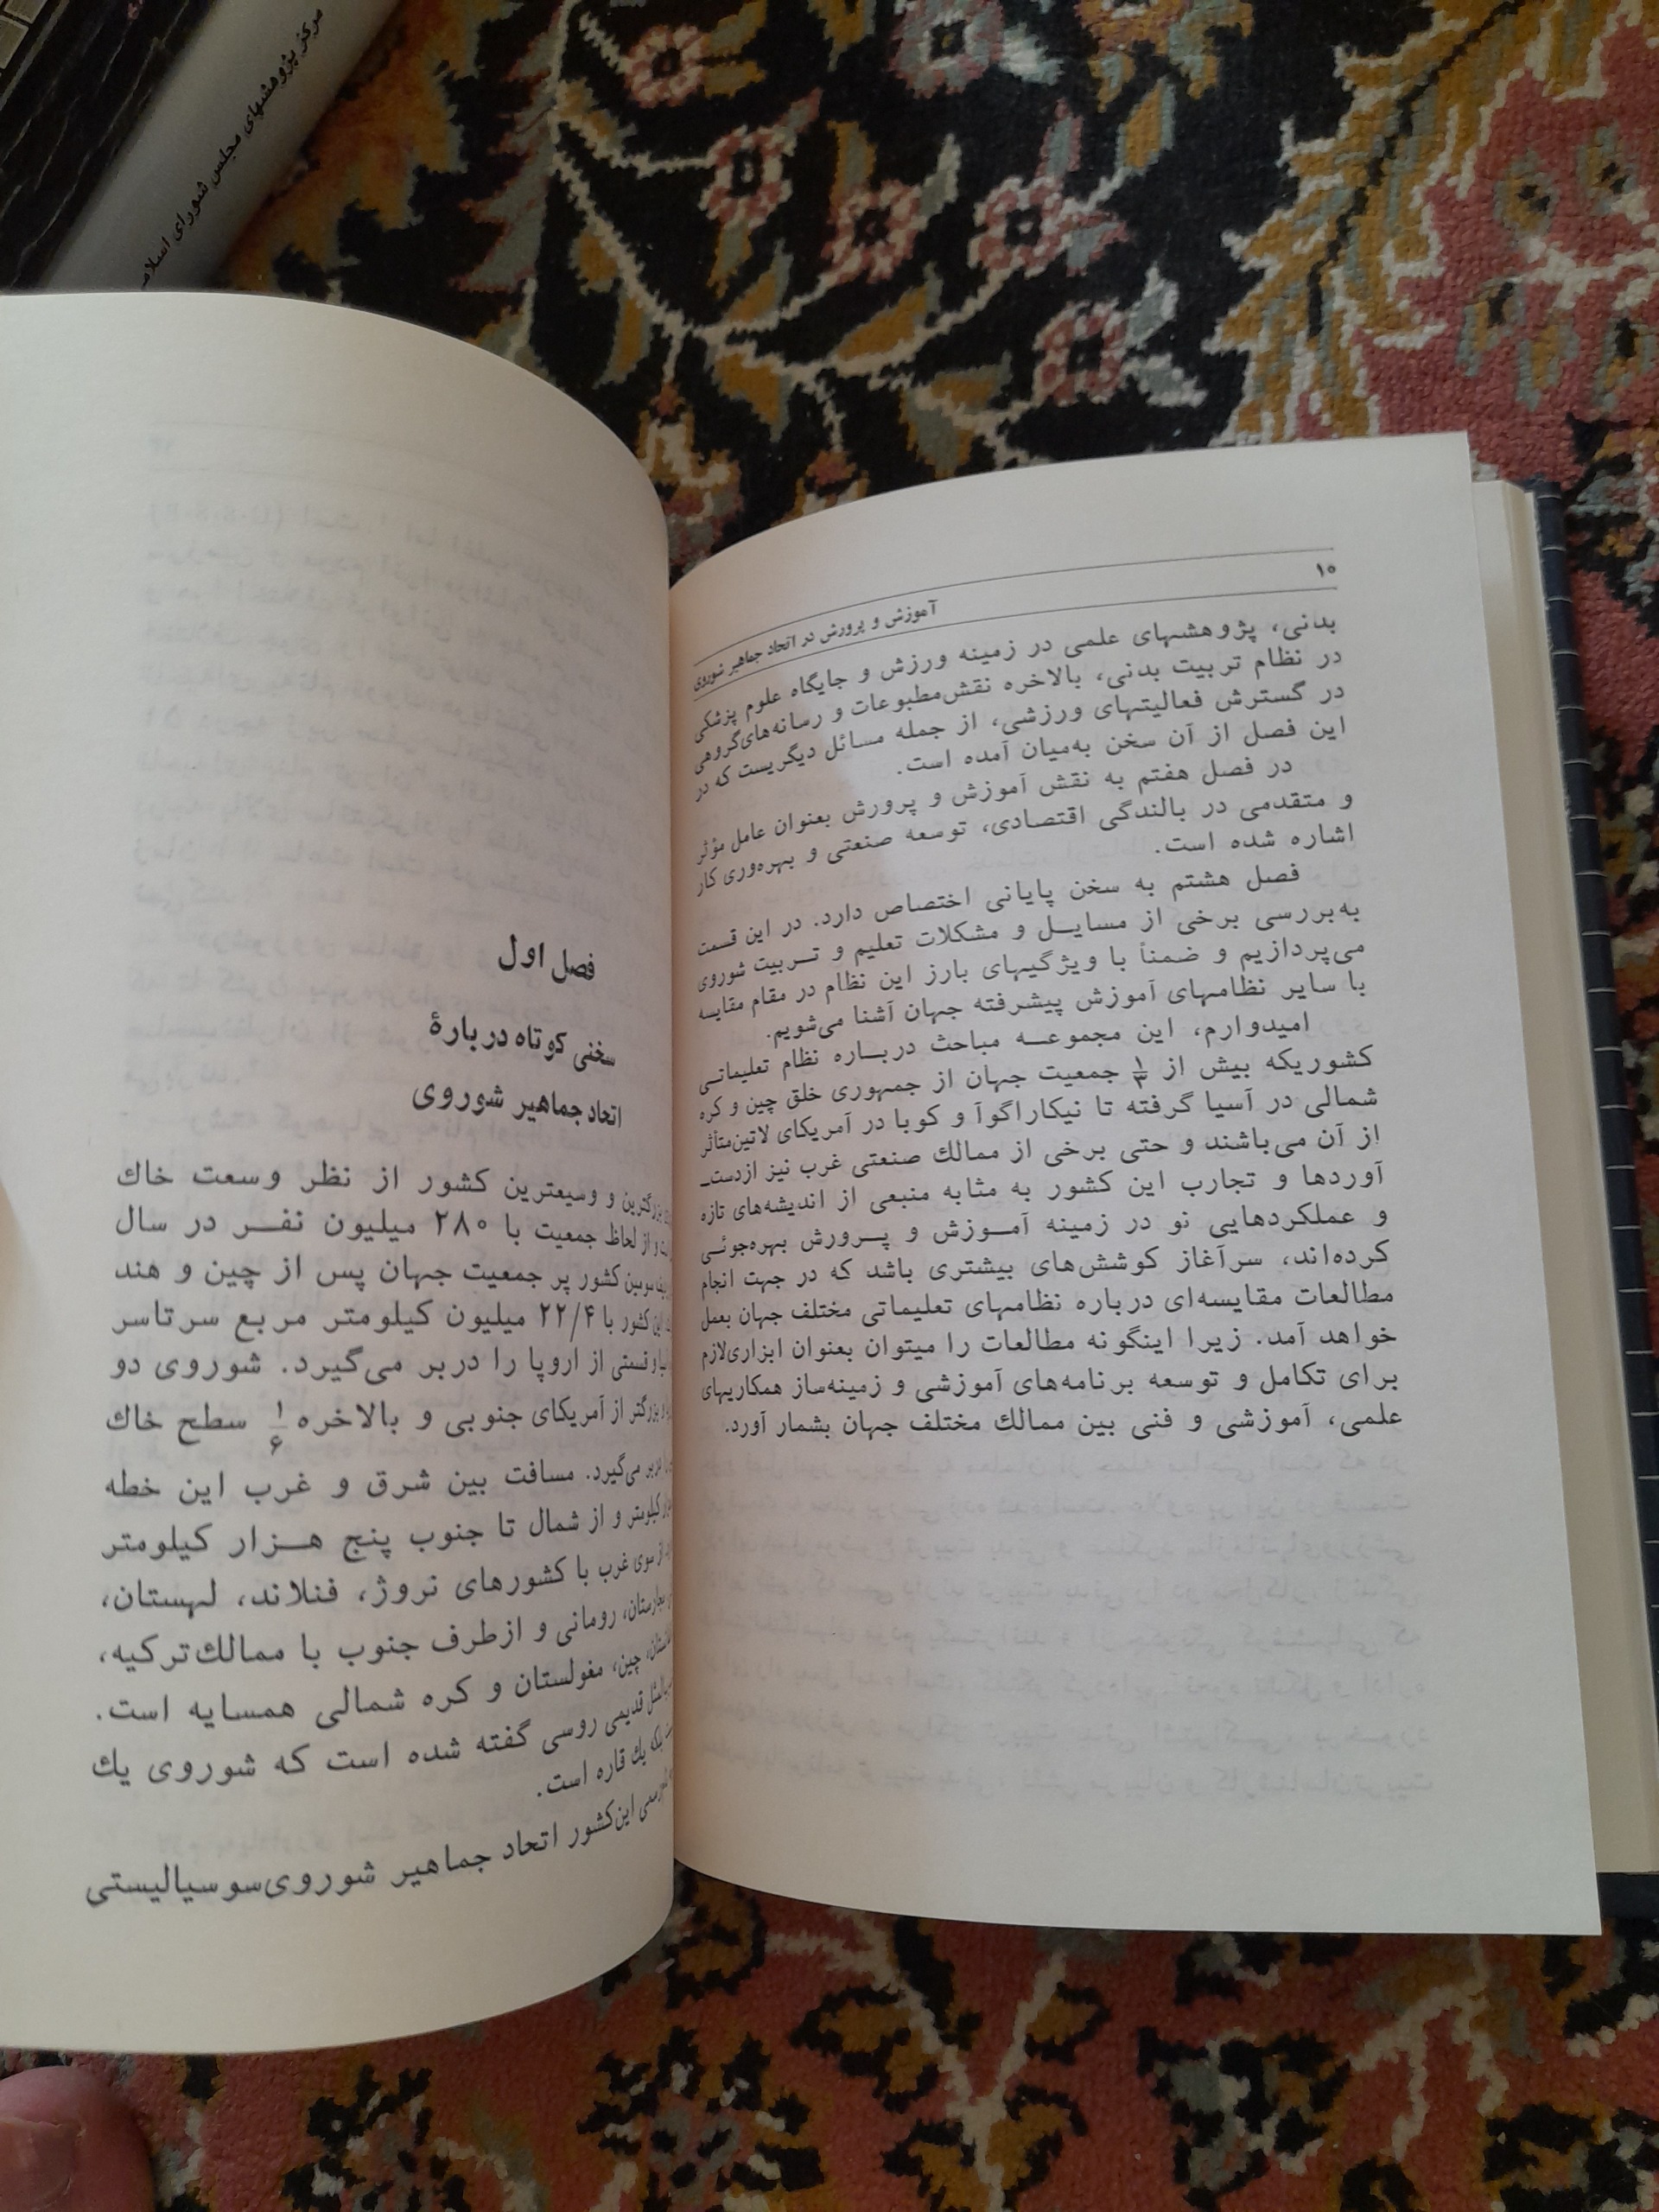 مرکز پژوهشهای مجلس شورای اسلامـ
۱۰
آموزش و پرورش در اتحاد جماهیر شوروی
بدنی، پژوهشهای علمی در زمینه ورزش و جایگاه علوم پزشکی
در نظام تربیت بدنی، بالاخره نقش‌مطبوعات و رسانه‌های‌گروهی
در گسترش فعالیتهای ورزشی، از جمله مسائل دیگریست که در
این فصل از آن سخن به‌میان آمده است.
در فصل هفتم به نقش آموزش و پرورش بعنوان عامل مؤثر
و متقدمی در بالندگی اقتصادی، توسعه صنعتی و بهره‌وری کار
اشاره شده است.
فصل هشتم به سخن پایانی اختصاص دارد. در این قسمت
به‌بررسی برخی از مسایــل و مشکلات تعلیم و تــربیت شوروی
می‌پردازیم و ضمناً با ویژگیهای بارز این نظام در مقام مقایسه
با سایر نظامهای آموزش پیشرفته جهان آشنا می‌شویم.
امیدوارم، این مجموعــه مباحث دربــاره نظام تعلیماتــی
کشوریکه بیش از ۱/۳ جمعیت جهان از جمهوری خلق چین و کره
شمالی در آسیا گرفته تا نیکاراگوآ و کوبا در آمریکای لاتین‌متأثر
از آن می‌باشند و حتی برخی از ممالك صنعتی غرب نیز ازدستـ
آوردها و تجارب این کشور به مثابه منبعی از اندیشه‌های تازه
و عملکردهایی نو در زمینه آمــوزش و پــرورش بهره‌جوئــی
کرده‌اند، سرآغاز کوشش‌های بیشتری باشد که در جهت انجام
مطالعات مقایسه‌ای درباره نظامهای تعلیماتی مختلف جهان بعمل
خواهد آمد. زیرا اینگونه مطالعات را میتوان بعنوان ابزاری‌لازم
برای تکامل و توسعه برنامه‌های آموزشی و زمینه‌ساز همکاریهای
علمی، آموزشی و فنی بین ممالك مختلف جهان بشمار آورد.
فصل اول
سخنی کوتاه دربارهٔ
اتحاد جماهیر شوروی
بزرگترین و وسیعترین کشور از نظر وسعت خاك
و از لحاظ جمعیت با ۲۸۰ میلیون نفــر در سال
سومین کشور پر جمعیت جهان پس از چین و هند
این کشور با ۲۲/۴ میلیون کیلومتر مربع سرتاسر
و قسمتی از اروپا را دربر می‌گیرد. شوروی دو
بزرگتر از آمریکای جنوبی و بالاخره ۱/۶ سطح خاك
می‌گیرد. مسافت بین شرق و غرب این خطه
کیلومتر و از شمال تا جنوب پنج هــزار کیلومتر
از سوی غرب با کشورهای نروژ، فنلاند، لهستان،
مجارستان، رومانی و ازطرف جنوب با ممالك‌ترکیه،
چین، مغولستان و کره شمالی همسایه است.
قدیمی روسی گفته شده است که شوروی یك
بلکه یك قاره است.
این‌کشور اتحاد جماهیر شوروی‌سوسیالیستی